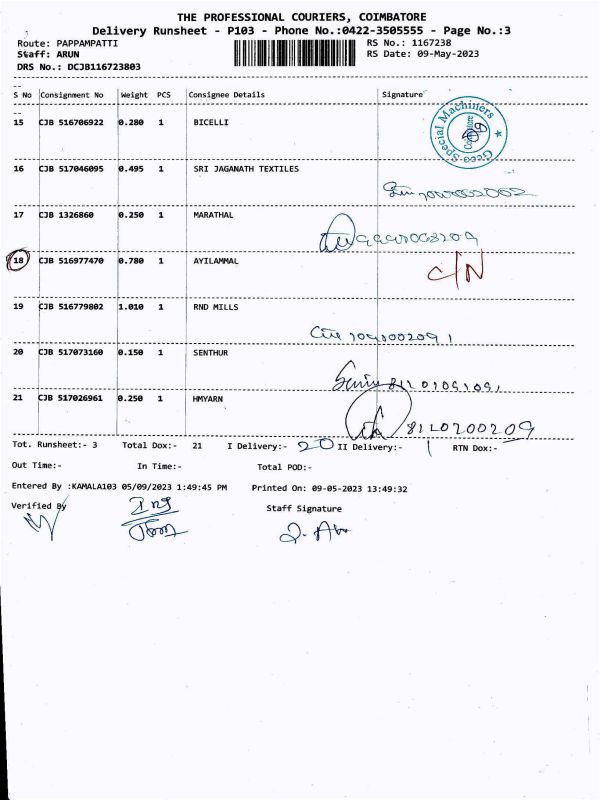 THE PROFESSIONAL COURIERS, COIMBATORE
Delivery Runsheet - P103 - Phone No.:0422-3505555 - Page No.:3
Route: PAPPAMPATTI RS No.: 1167238
Staff: ARUN RS Date: 09-May-2023
DRS No.: DCJB116723803
S No Consignment No Weight PCS Consignee Details Signature
15 CJB 516706922 0.280 1 BICELLI
Special Machiners
Coimbatore
16 CJB 517046095 0.495 1 SRI JAGANATH TEXTILES
17 CJB 1326860 0.250 1 MARATHAL
18 CJB 516977470 0.780 1 AYILAMMAL C/N
19 CJB 516779802 1.010 1 RND MILLS
20 CJB 517073160 0.150 1 SENTHUR
21 CJB 517026961 0.250 1 HMYARN
8110200209
Tot. Runsheet:- 3 Total Dox:- 21 I Delivery:- 20 II Delivery:- 1 RTN Dox:-
Out Time:- In Time:- Total POD:-
Entered By :KAMALA103 05/09/2023 1:49:45 PM Printed On: 09-05-2023 13:49:32
Verified By Staff Signature